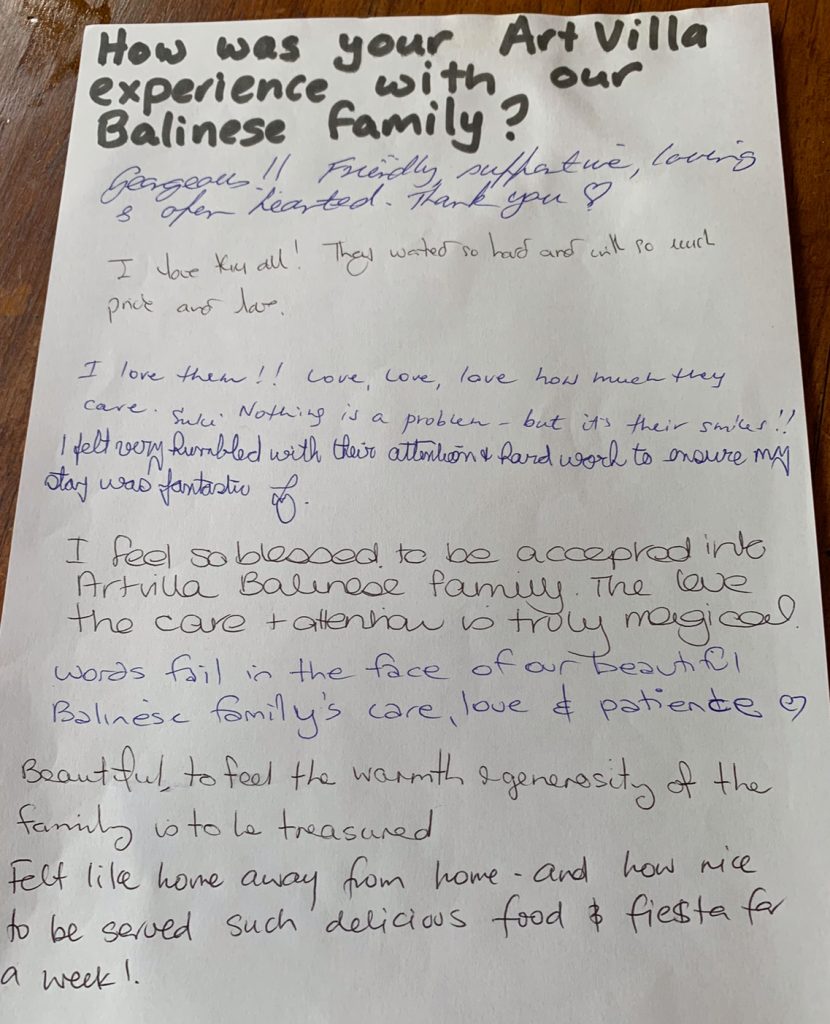 How was your Art Villa
experience with our
Balinese family?
Gorgeous!! Friendly, supportive, loving
& open hearted. Thank you ♡
I love them all! They worked so hard and with so much
pride and love.
I love them!! Love, Love, love how much they
care. Nothing is a problem - but it's their smiles!!
I felt very humbled with their attention & hard work to ensure my
stay was fantastic
I feel so blessed to be accepted into
Artvilla Balinese family. The love
the care + attention is truly magical.
words fail in the face of our beautiful
Balinese family's care, love & patience ♡
Beautiful, to feel the warmth & generosity of the
family is to be treasured
Felt like home away from home - and how nice
to be served such delicious food & fiesta for
a week!.